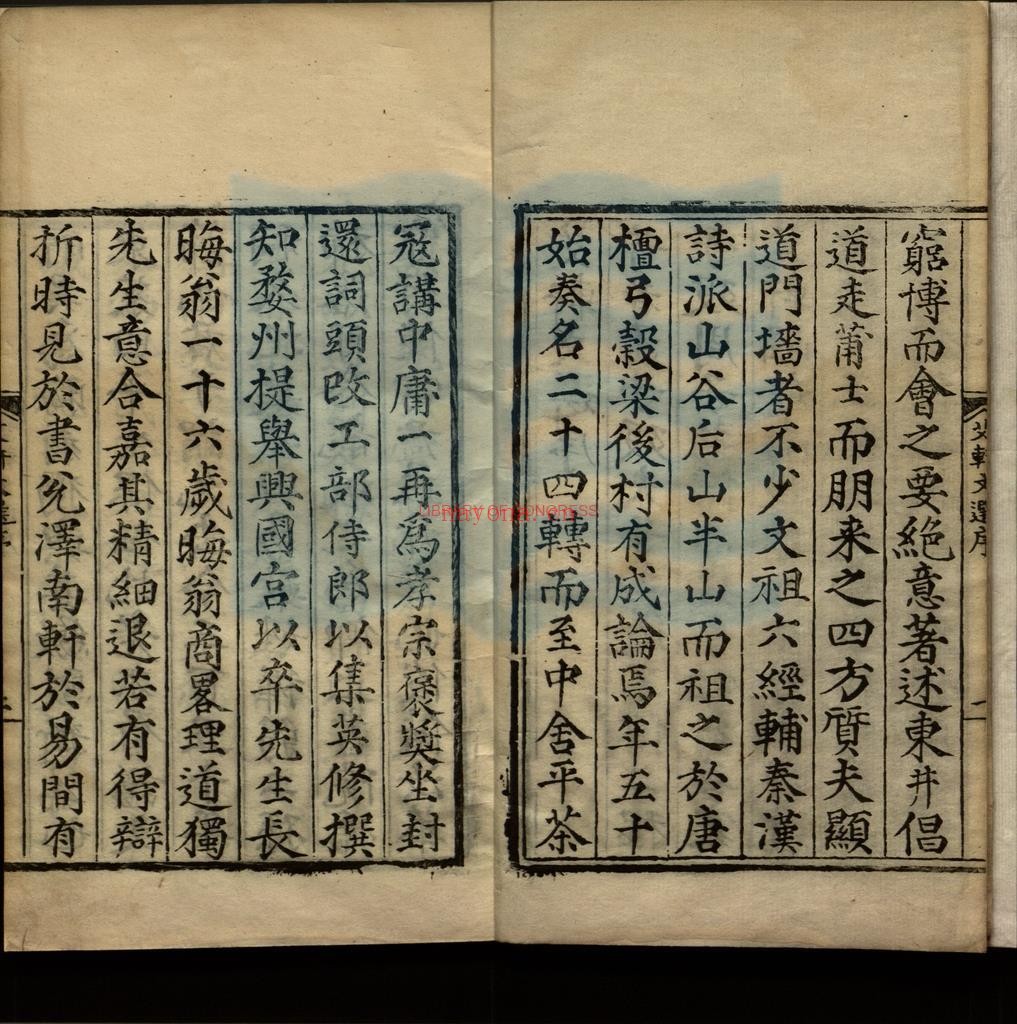 艾軒文選序
二
窮博而會之要絶意著述東井倡
道走莆士而朋来之四方質夫顯
道門墻者不少文祖六經輔秦漢
詩派山谷后山半山而祖之於唐
檀弓穀梁後村有成論焉年五十
始奏名二十四轉而至中舍平茶
冦講中庸一再爲孝宗褒奬坐封
還詞頭改工部侍郎以集英修撰
知婺州提舉興國宮以卒先生長
晦翁一十六歲晦翁商畧理道獨
先生意合嘉其精細退若有得辯
析時見於書兊澤南軒於易間有
LIBRARY OF CONGRESS